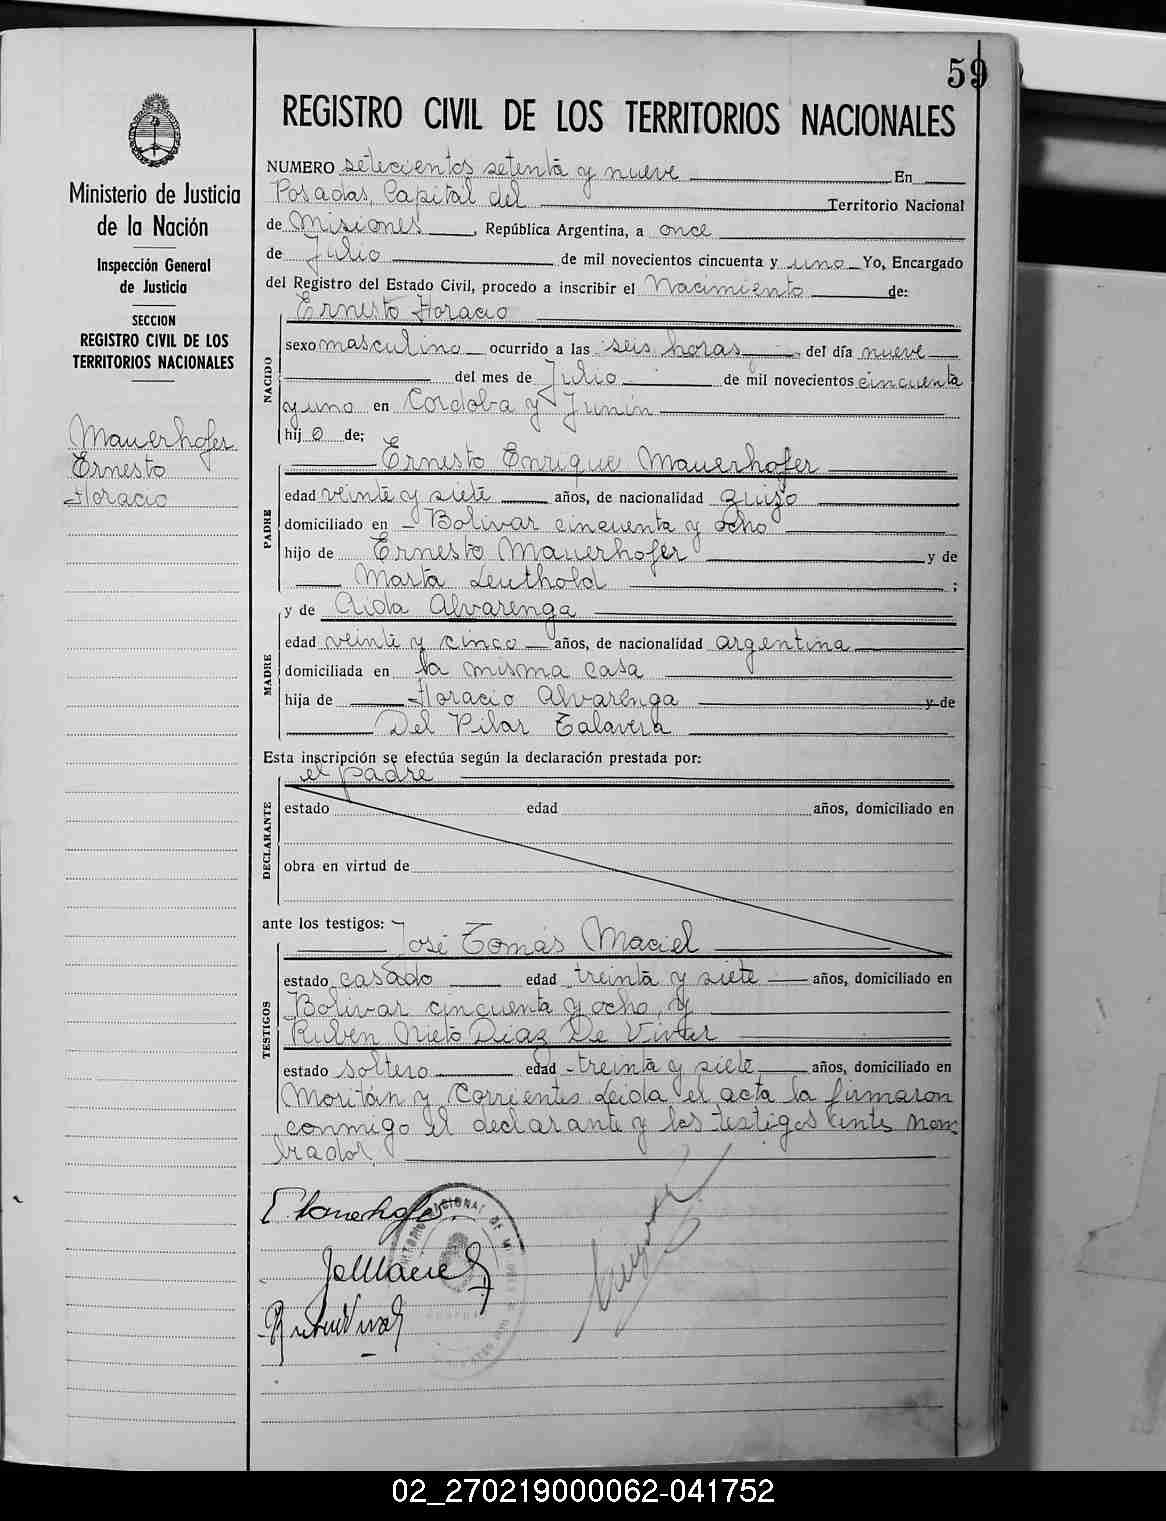 59
REGISTRO CIVIL DE LOS TERRITORIOS NACIONALES
Ministerio de Justicia
de la Nación
Inspección General
de Justicia
SECCION
REGISTRO CIVIL DE LOS
TERRITORIOS NACIONALES
Mauerhofer
Ernesto
Horacio
NUMERO setecientos setenta y nueve En
Posadas, Capital del Territorio Nacional
de Misiones, República Argentina, a once
de Julio de mil novecientos cincuenta y uno Yo, Encargado
del Registro del Estado Civil, procedo a inscribir el Nacimiento de:
Ernesto Horacio
NACIDO
sexo masculino ocurrido a las seis horas, del día nueve
del mes de Julio de mil novecientos cincuenta
y uno en Cordoba y Junin
hijo de;
Ernesto Enrique Mauerhofer
PADRE
edad veinte y siete años, de nacionalidad quizo
domiciliado en Bolivar cincuenta y ocho
hijo de Ernesto Mauerhofer y de
Marta Leuthold ;
y de Aida Alvarenga
MADRE
edad veinte y cinco años, de nacionalidad argentina
domiciliada en la misma casa
hija de Horacio Alvarenga y de
Del Pilar Talavera
Esta inscripción se efectúa según la declaración prestada por:
el padre
DECLARANTE
estado edad años, domiciliado en
obra en virtud de
ante los testigos:
José Tomás Maciel
TESTIGOS
estado casado edad treinta y siete años, domiciliado en
Bolivar cincuenta y ocho, y
Ruben Nieto Diaz De Vivar
estado soltero edad treinta y siete años, domiciliado en
Moritán y Corrientes Leida el acta la firmaron
conmigo el declarante y los testigos ante nom
brados.
E Mauerhofer.
02_270219000062-041752